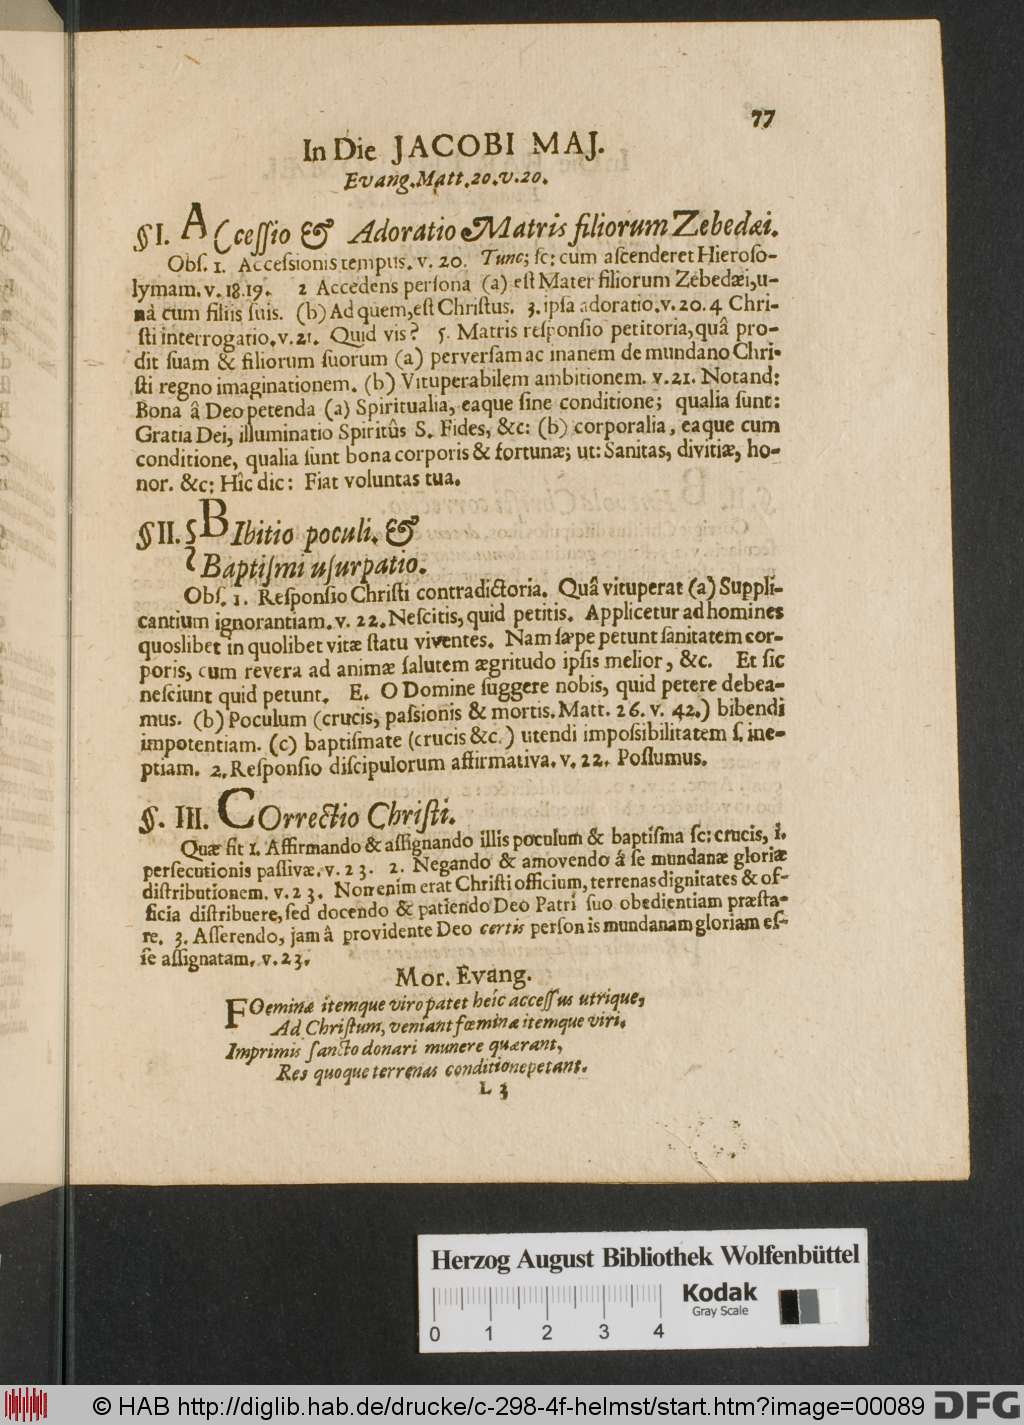 77
In Die JACOBI MAJ.
Evang. Matt. 20. v. 20.
§ I. ACcessio & Adoratio Matris filiorum Zebedæi.
Obs. 1. Accessionis tempus. v. 20. Tunc; sc: cum ascenderet Hieroso-
lymam. v. 18. 19. 2 Accedens persona (a) est Mater filiorum Zebedæi, u-
nâ cum filiis suis. (b) Ad quem, est Christus. 3. ipsa adoratio. v. 20. 4 Chri-
sti interrogatio. v. 21. Quid vis? 5. Matris responsio petitoria, quâ pro-
dit suam & filiorum suorum (a) perversam ac inanem de mundano Chri-
sti regno imaginationem. (b) Vituperabilem ambitionem. v. 21. Notand:
Bona â Deo petenda (a) Spiritualia, eaque sine conditione; qualia sunt:
Gratia Dei, illuminatio Spiritûs S. Fides, &c: (b) corporalia, eaque cum
conditione, qualia sunt bona corporis & fortunæ; ut: Sanitas, divitiæ, ho-
nor. &c: Hîc dic: Fiat voluntas tua.
§ II. BIbitio poculi, &
Baptismi usurpatio.
Obs. 1. Responsio Christi contradictoria. Quâ vituperat (a) Suppli-
cantium ignorantiam. v. 22. Nescitis, quid petitis. Applicetur ad homines
quoslibet in quolibet vitæ statu viventes. Nam sæpe petunt sanitatem cor-
poris, cum revera ad animæ salutem ægritudo ipsis melior, &c. Et sic
nesciunt quid petunt. E. O Domine suggere nobis, quid petere debea-
mus. (b) Poculum (crucis, passionis & mortis. Matt. 26. v. 42.) bibendi
impotentiam. (c) baptismate (crucis &c.) utendi impossibilitatem s. ine-
ptiam. 2. Responsio discipulorum affirmativa. v. 22. Possumus.
§. III. COrrectio Christi.
Quæ fit 1. Affirmando & assignando illis poculum & baptisma sc: crucis, i.
persecutionis passivæ. v. 23. 2. Negando & amovendo â se mundanæ gloriæ
distributionem. v. 23. Non enim erat Christi officium, terrenas dignitates & of-
ficia distribuere, sed docendo & patiendo Deo Patri suo obedientiam præsta-
re. 3. Asserendo, jam â providente Deo certis personis mundanam gloriam es-
se assignatam. v. 23.
Mor. Evang.
FOeminæ itemque viro patet heîc accessus utrique,
Ad Christum, veniant fœminæ itemque viri.
Imprimis sancto donari munere quærant,
Res quoque terrenas conditione petant.
L 3
Herzog August Bibliothek Wolfenbüttel
0 1 2 3 4
Kodak
Gray Scale
© HAB http://diglib.hab.de/drucke/c-298-4f-helmst/start.htm?image=00089
DFG